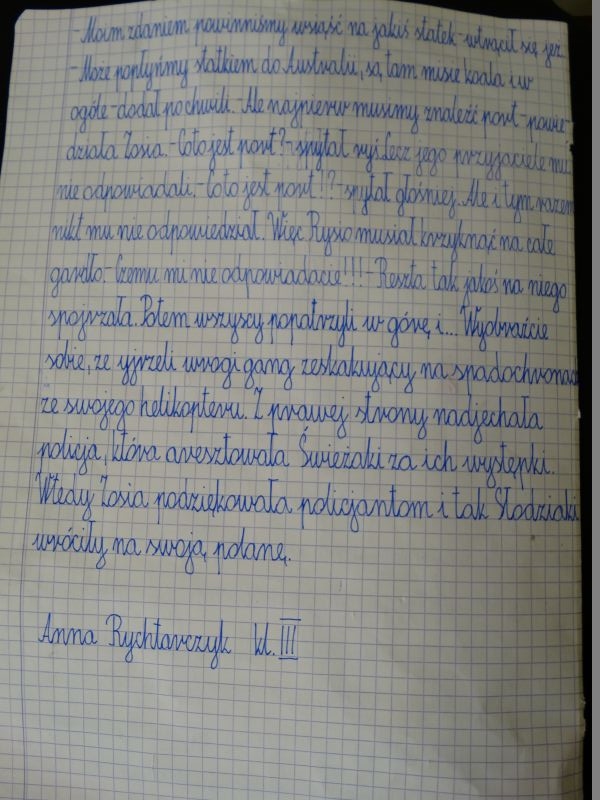 -Moim zdaniem powinniśmy wsiąść na jakiś statek-wtrącił się jeż.
-Może popłyńmy statkiem do Australii, są tam misie koala i w
ogóle-dodał po chwili. Ale najpierw musimy znaleźć port-powie-
działa Zosia.-Co to jest port?-spytał ryś. Lecz jego przyjaciele mu
nie odpowiadali.-Co to jest port!?-spytał głośniej. Ale i tym razem
nikt mu nie odpowiedział. Więc Rysio musiał krzyknąć na całe
gardło.-Czemu mi nie odpowiadacie!!!-Reszta tak jakoś na niego
spojrzała. Potem wszyscy popatrzyli w górę i... Wyobraźcie
sobie, że ujrzeli wrogi gang zeskakujący na spadochronach
ze swojego helikopteru. Z prawej strony nadjechała
policja, która aresztowała Świeżaki za ich występki.
Wtedy Zosia podziękowała policjantom i tak Słodziaki
wróciły na swoją polanę.
Anna Rychtarczyk kl. III